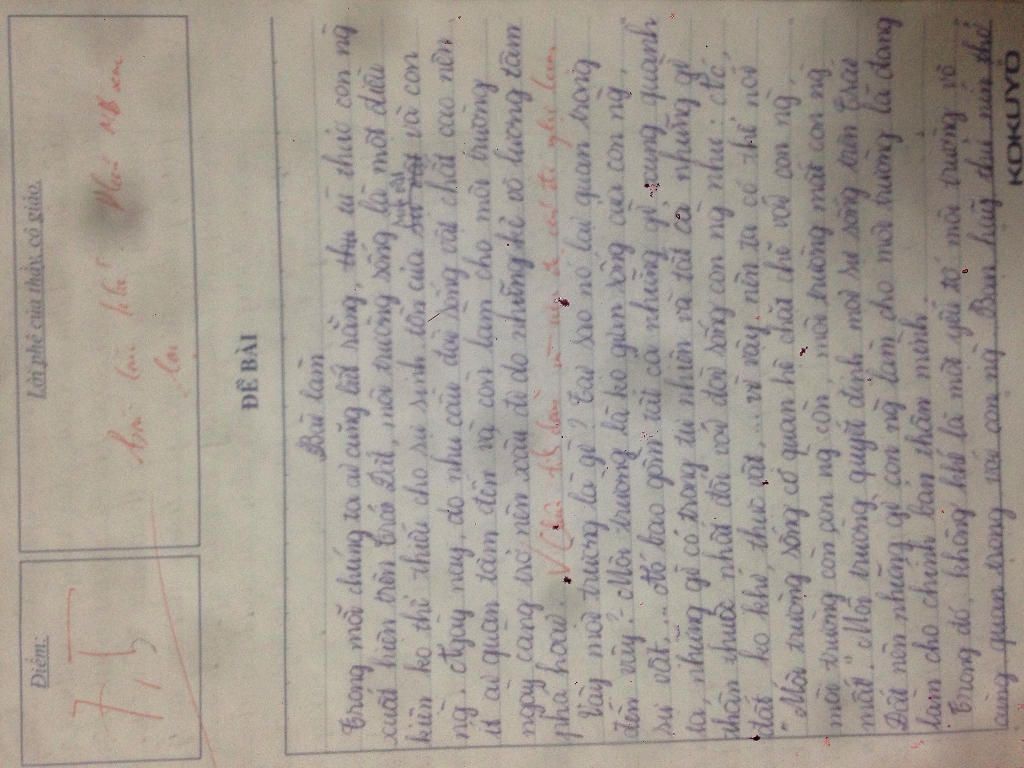 Điểm:
Lời phê của thầy, cô giáo.
7,5
Bài làm khá. Phần MB xem
lại
ĐỀ BÀI
Bài làm
Trong mỗi chúng ta ai cũng biết rằng, từ khi con ng
xuất hiện trên Trái Đất, môi trường sống là một điều
kiện ko thể thiếu cho sự sinh tồn của và con
ng. Ngày nay, do nhu cầu đời sống vật chất cao nên
ít ai quan tâm đến và còn làm cho môi trường
ngày càng trở nên xấu đi do những kẻ vô lương tâm
phá hoại.
Vậy môi trường là gì? Tại sao nó lại quan trọng
đến vậy? - Môi trường là ko gian sống của con ng,
sự vật,... đó bao gồm tất cả những gì xung quanh
ta, những gì có trong tự nhiên và tất cả những gì
thân thuộc nhất đối với đời sống con ng như: đất,
ko khí, thực vật,... vì vậy nên ta có thể nói
"Môi trường sống có quan hệ chặt chẽ với con ng,
môi trường còn con ng còn, môi trường mất con ng
mất". Môi trường quyết định mọi sự sống trên Trái
Đất nên những gì con ng làm cho môi trường là đang
làm cho chính bản thân mình.
Trong đó, không khí là một yếu tố môi trường vô
cùng quan trọng với con ng. Bạn hãy thử nín thở
KOKUYO